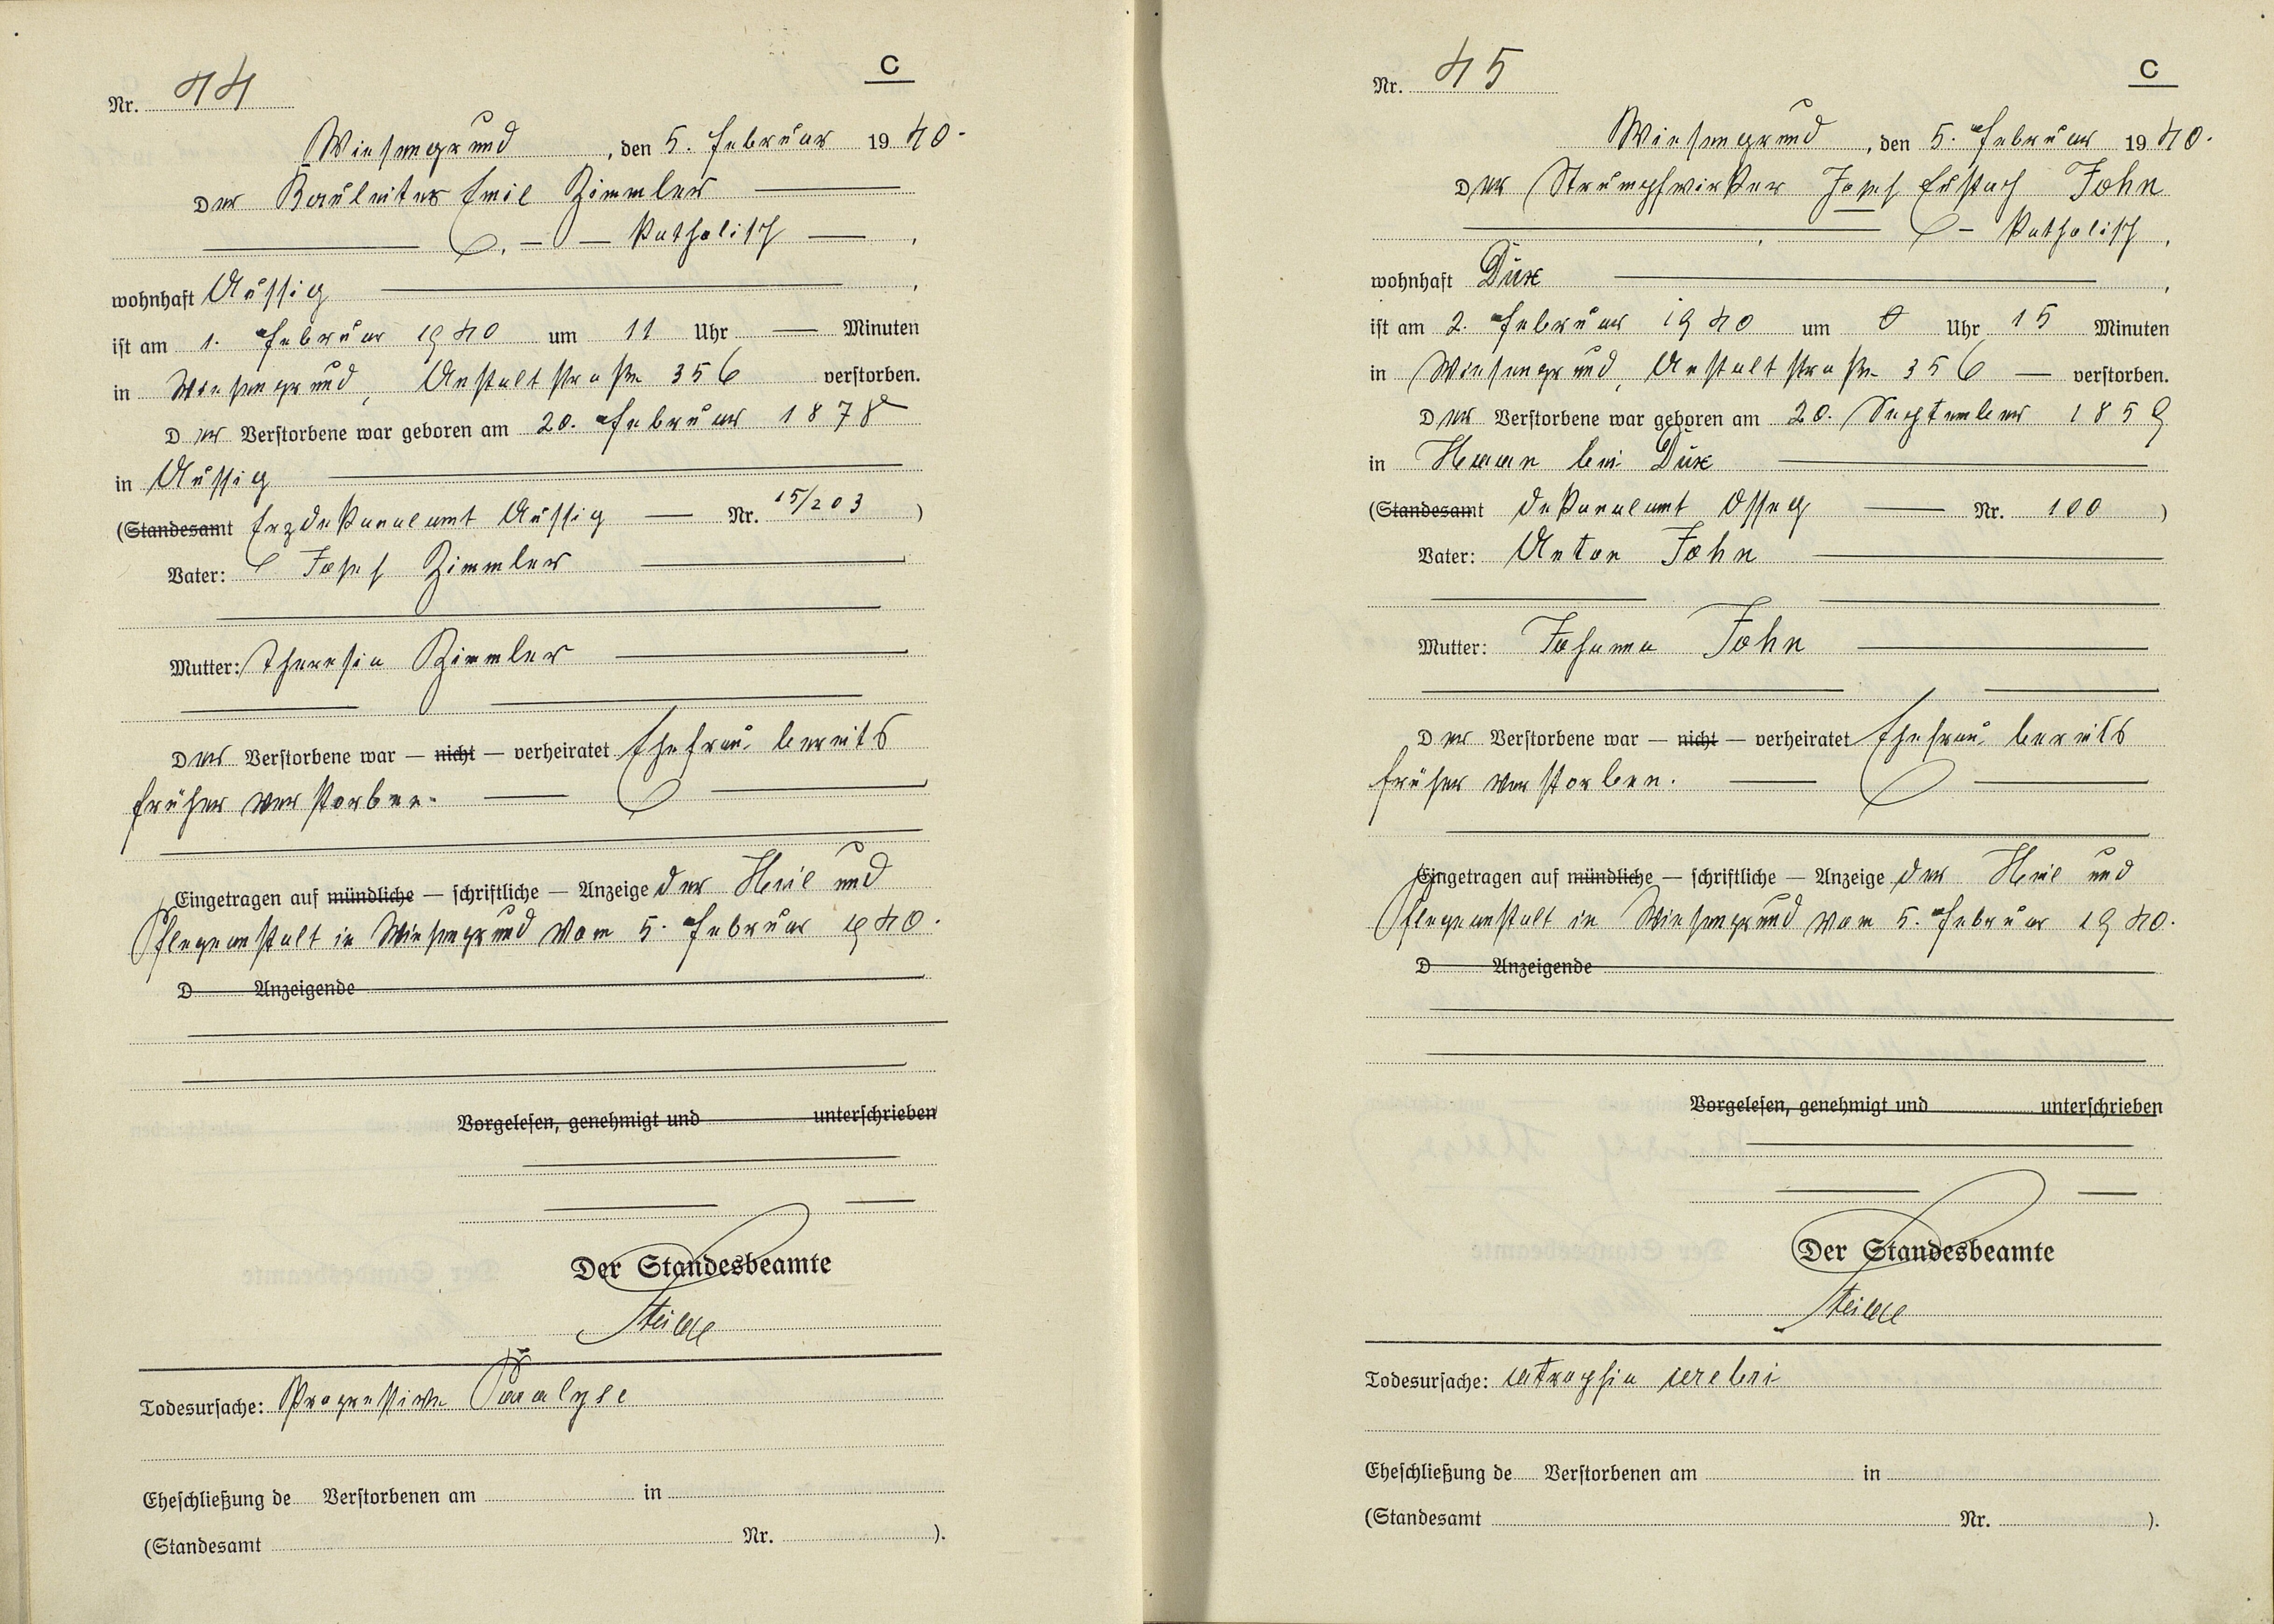 C
Nr. 44
Wiesengrund, den 5. Februar 1940.
Der Bauleiter Emil Zimmler
— — katholisch —,
wohnhaft Aussig,
ist am 1. Februar 1940 um 11 Uhr — Minuten
in Wiesengrund, Anstaltstraße 356 verstorben.
Der Verstorbene war geboren am 20. Februar 1878
in Aussig
(Standesamt Erzdekanalamt Aussig — Nr. 15/203)
Vater: Josef Zimmler
Mutter: Theresia Zimmler
Der Verstorbene war — nicht — verheiratet Ehefrau bereits
früher verstorben.
Eingetragen auf mündliche — schriftliche — Anzeige der Heil und
Pflegeanstalt in Wiesengrund vom 5. Februar 1940.
D Anzeigende
Vorgelesen, genehmigt und unterschrieben
Der Standesbeamte
Todesursache: Progressive Paralyse
Eheschließung de Verstorbenen am in
(Standesamt Nr. ).
C
Nr. 45
Wiesengrund, den 5. Februar 1940.
Der Strumpfwirker Josef Eustach John
— katholisch,
wohnhaft Dux,
ist am 2. Februar 1940 um 0 Uhr 15 Minuten
in Wiesengrund, Anstaltstraße 356 — verstorben.
Der Verstorbene war geboren am 20. September 1859
in Haan bei Dux
(Standesamt Dekanalamt Ossegg — Nr. 100)
Vater: Anton John
Mutter: Johanna John
Der Verstorbene war — nicht — verheiratet Ehefrau bereits
früher verstorben.
Eingetragen auf mündliche — schriftliche — Anzeige der Heil und
Pflegeanstalt in Wiesengrund vom 5. Februar 1940.
D Anzeigende
Vorgelesen, genehmigt und unterschrieben
Der Standesbeamte
Todesursache: Atrophia cerebri
Eheschließung de Verstorbenen am in
(Standesamt Nr. ).